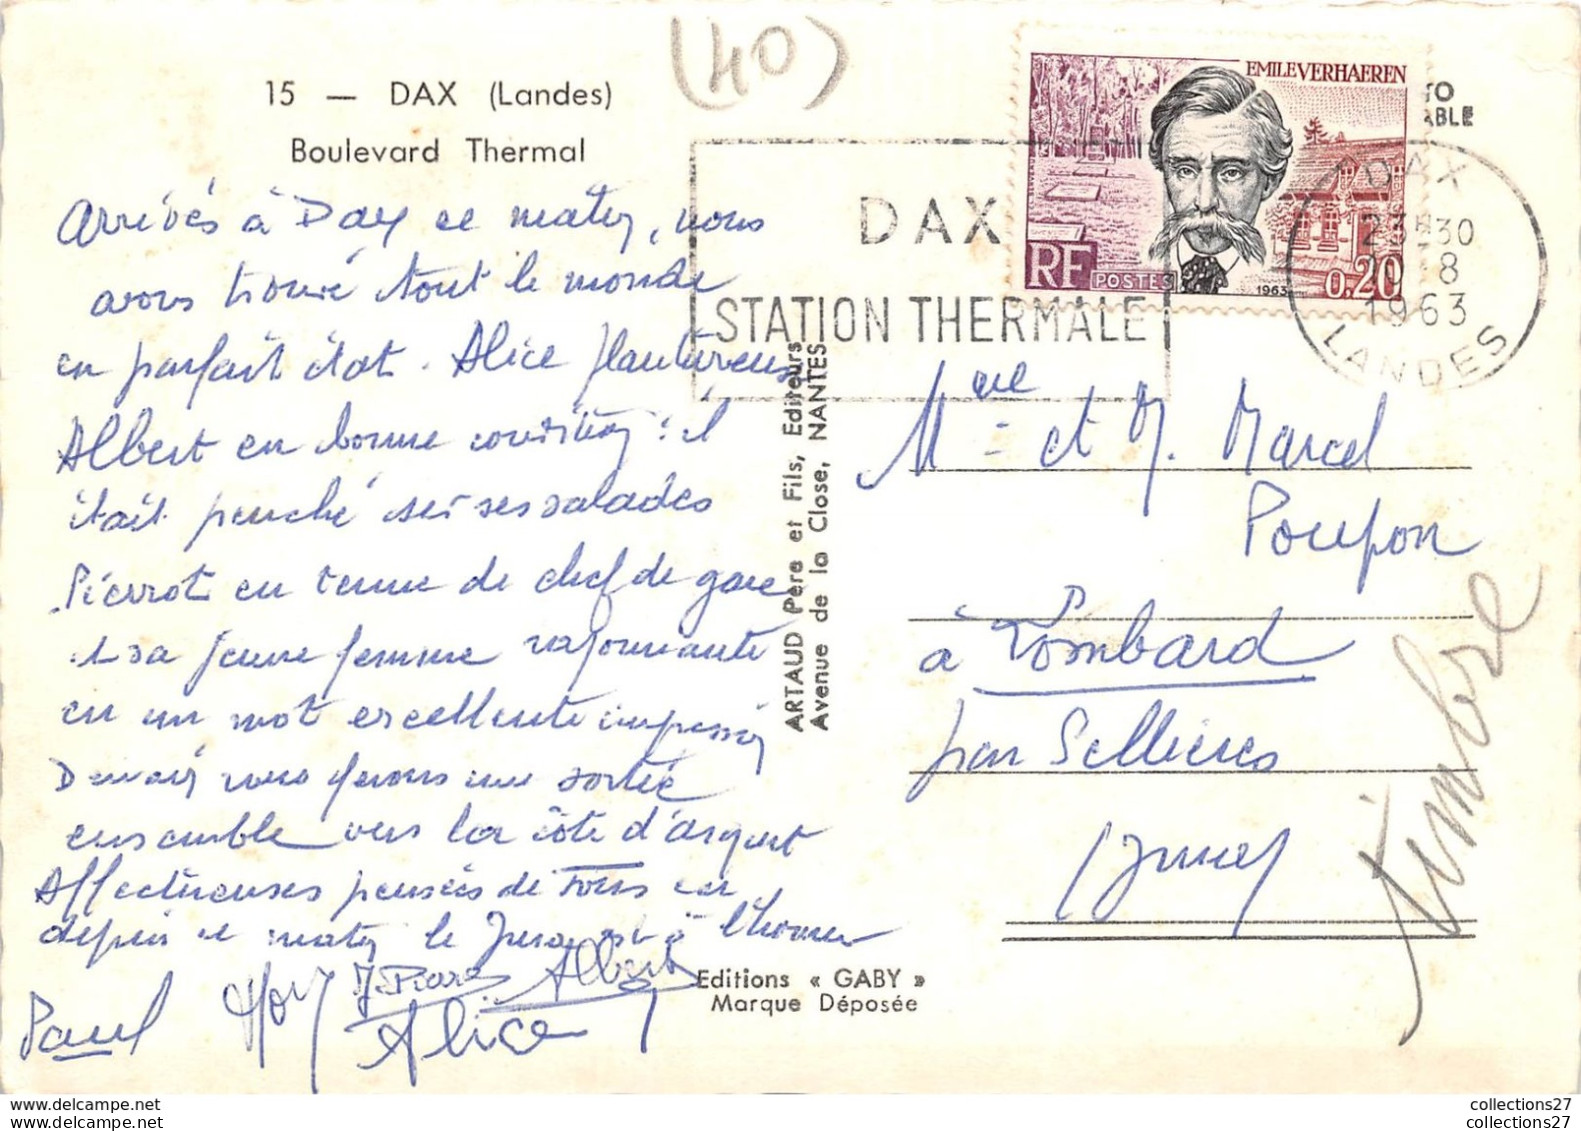 (40)
15 — DAX (Landes)
Boulevard Thermal
Arrivés à Dax ce matin, nous
avons trouvé tout le monde
en parfait état. Alice plantureuse
Albert en bonne condition : il
était penché sur ses salades
Pierrot en tenue de chef de gare
et sa jeune femme rayonnante
en un mot excellente impression
Demain nous ferons une sortie
ensemble vers la côte d'argent
Affectueuses pensées de tous car
depuis ce matin le Jura est à l'honneur
Paul
J. Pierre
Albert
Alice
ARTAUD Père et Fils, Editeurs
Avenue de la Close, NANTES
Editions « GABY »
Marque Déposée
EMILE VERHAEREN
RF POSTES 1963 0,20
DAX
STATION THERMALE
DAX
23H30
8
1963
LANDES
TO
ABLE
Mme et M. Marcel
Poupon
à Lombard
par Sellières
(Jura)
timbre
collections27
collections27